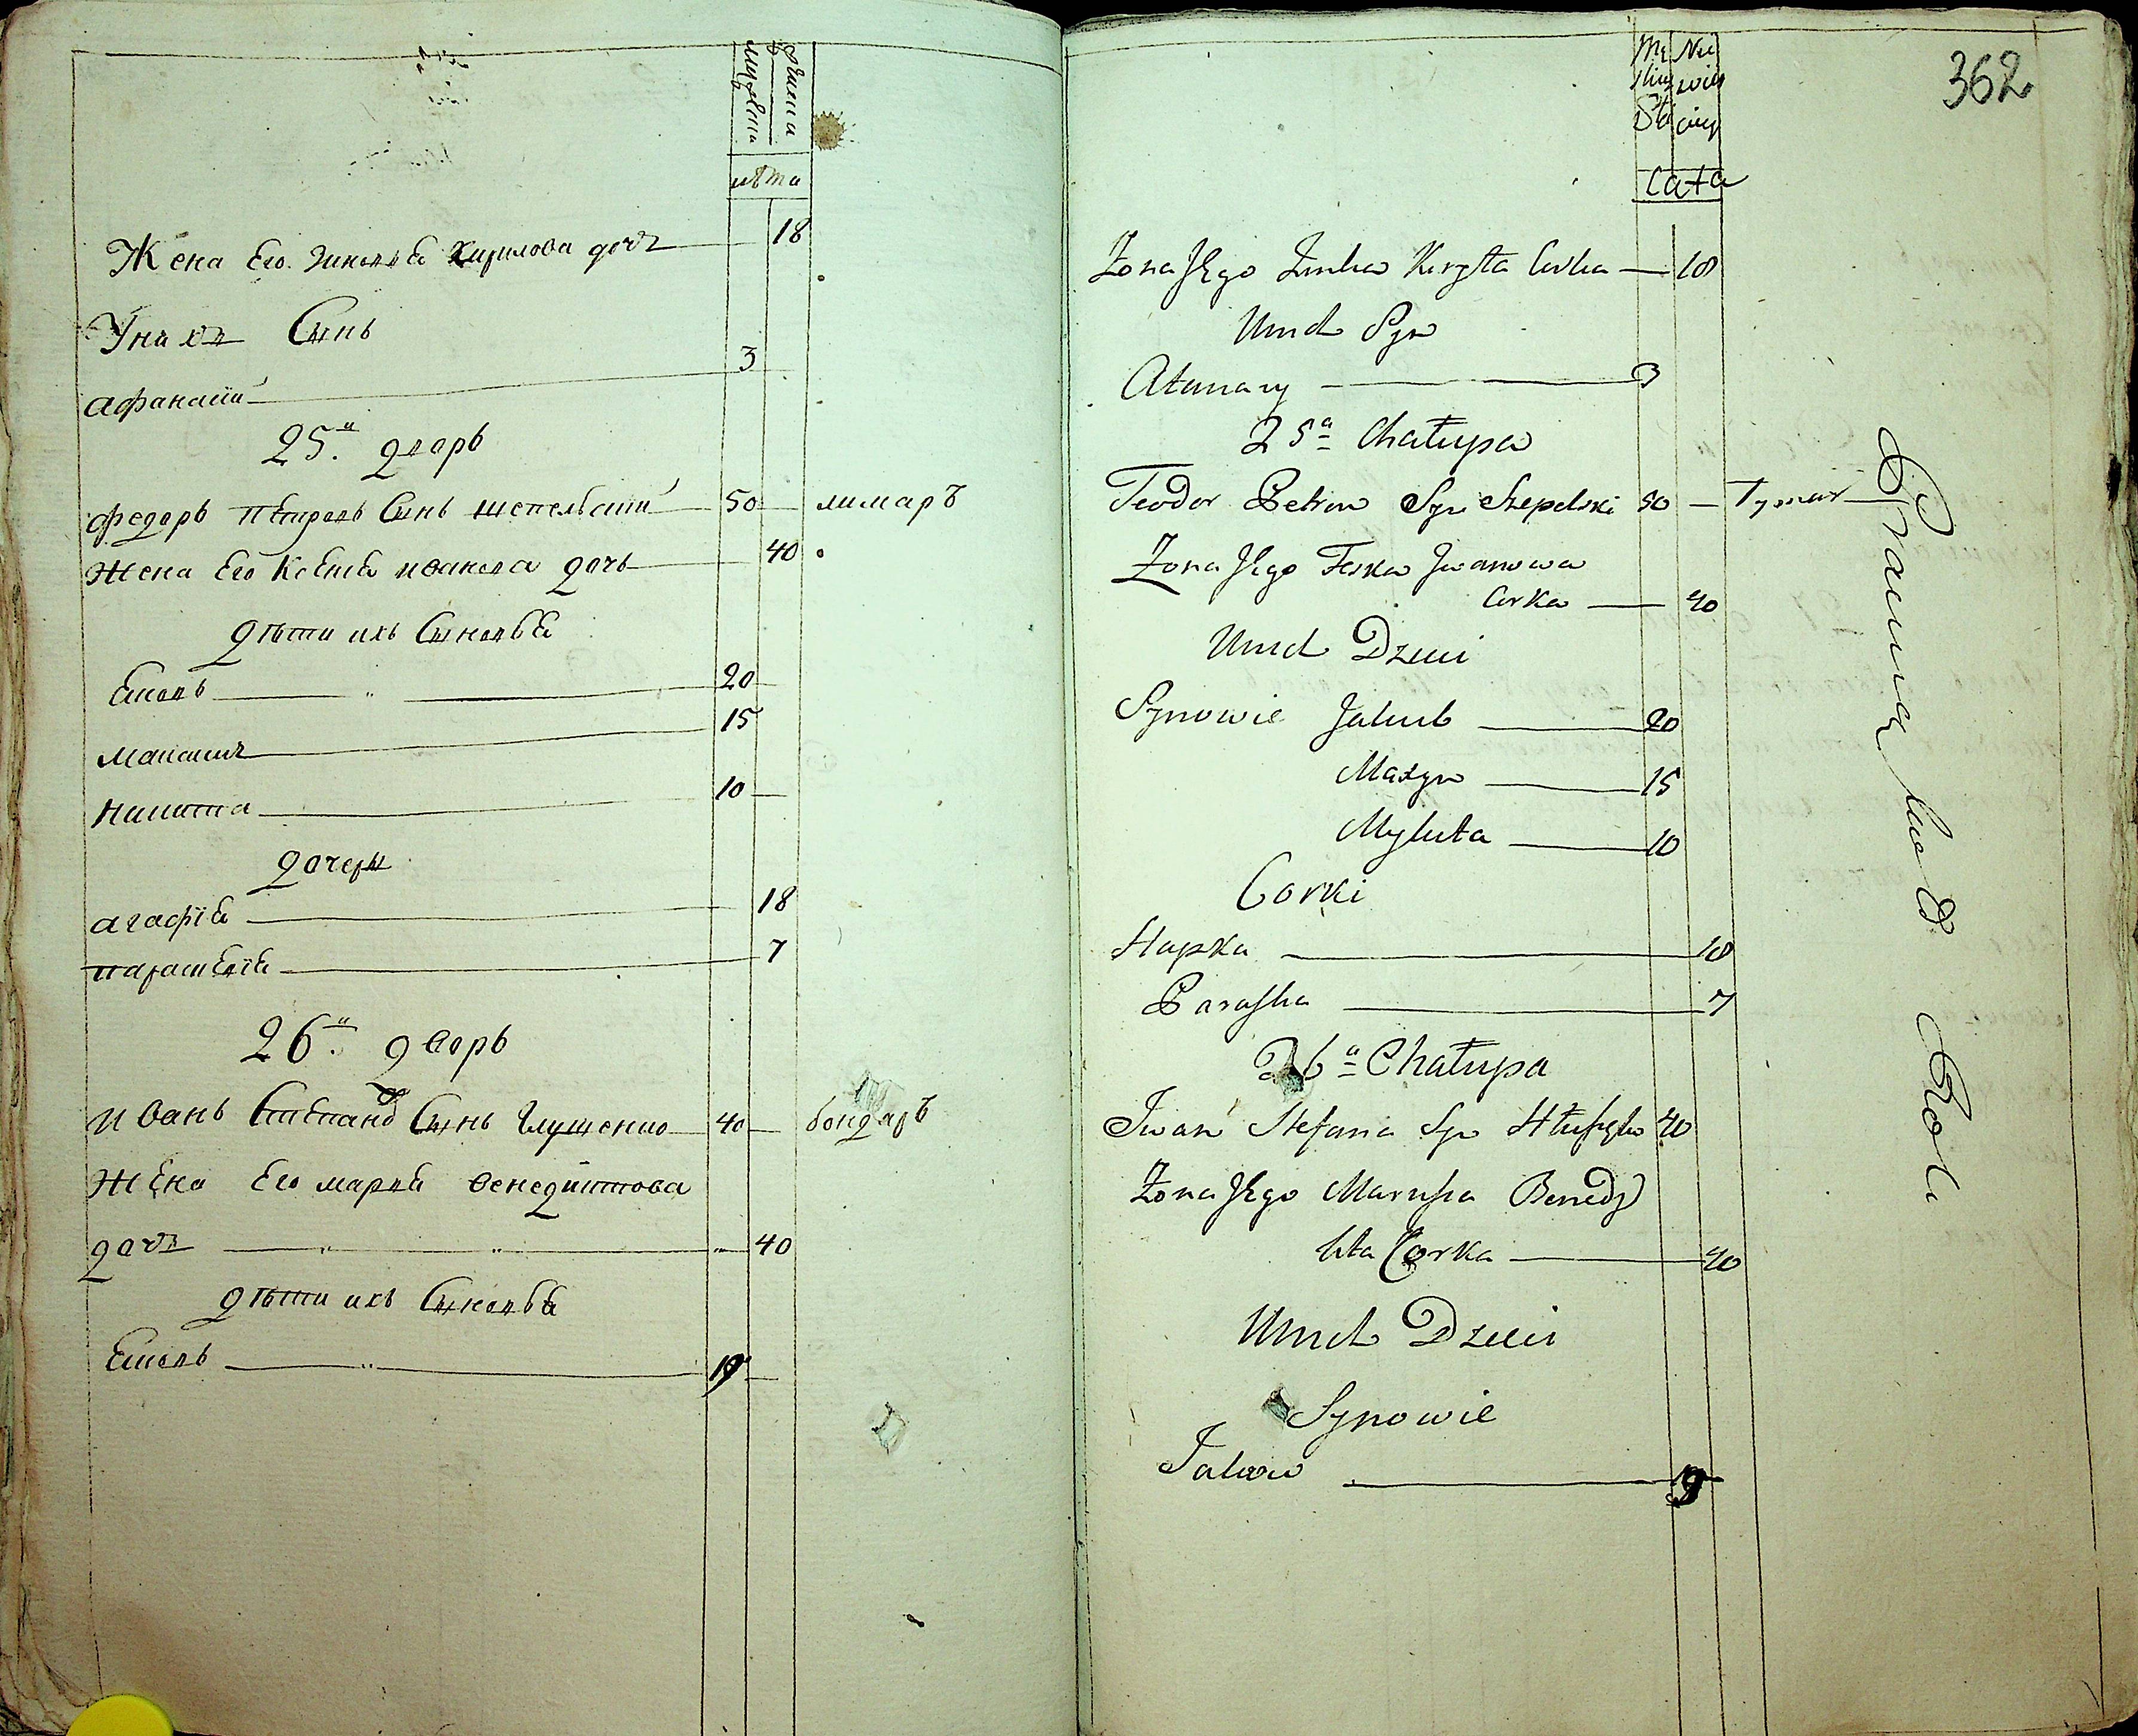 мужеска
женска
лѣта
Жена Его Зиновѣя Кирилова дочь 18
У них Сынъ
Афанасий 3
25.й дворъ
Федоръ Петровъ Сынъ Шепелский 50 лимаръ
Жена Его Ксения Иванова дочь 40
Дѣти ихъ Сыновья
Яковъ 20
Максимъ 15
Никита 10
дочеры
Агафія 18
Параскевія 7
26.й дворъ
Иванъ Степановъ Сынъ Глущенко 40 бондаръ
Жена Его Мария Венедиктова
дочь 40
Дѣти ихъ Сыновья
Яковъ 19
362
Męskiey Niewie
Sta ciey
Lata
Żona Jego Zinka Kiryła Corka 18
Umch Syn
Atanazy 3
25a Chałupa
Teodor Petrow Syn Szepelski 50 Tymar
Żona Jego Feska Jwanowa
Corka 40
Umch Dzieci
Synowie Jakub 20
Maxym 15
Mykita 10
Corki
Hapka 18
Paraska 7
26a Chałupa
Jwan Stefana Syn Hłuszko 40
Żona Jego Maruszka Benedy
kta Corka 40
Umch Dzieci
Synowie
Jakow 9